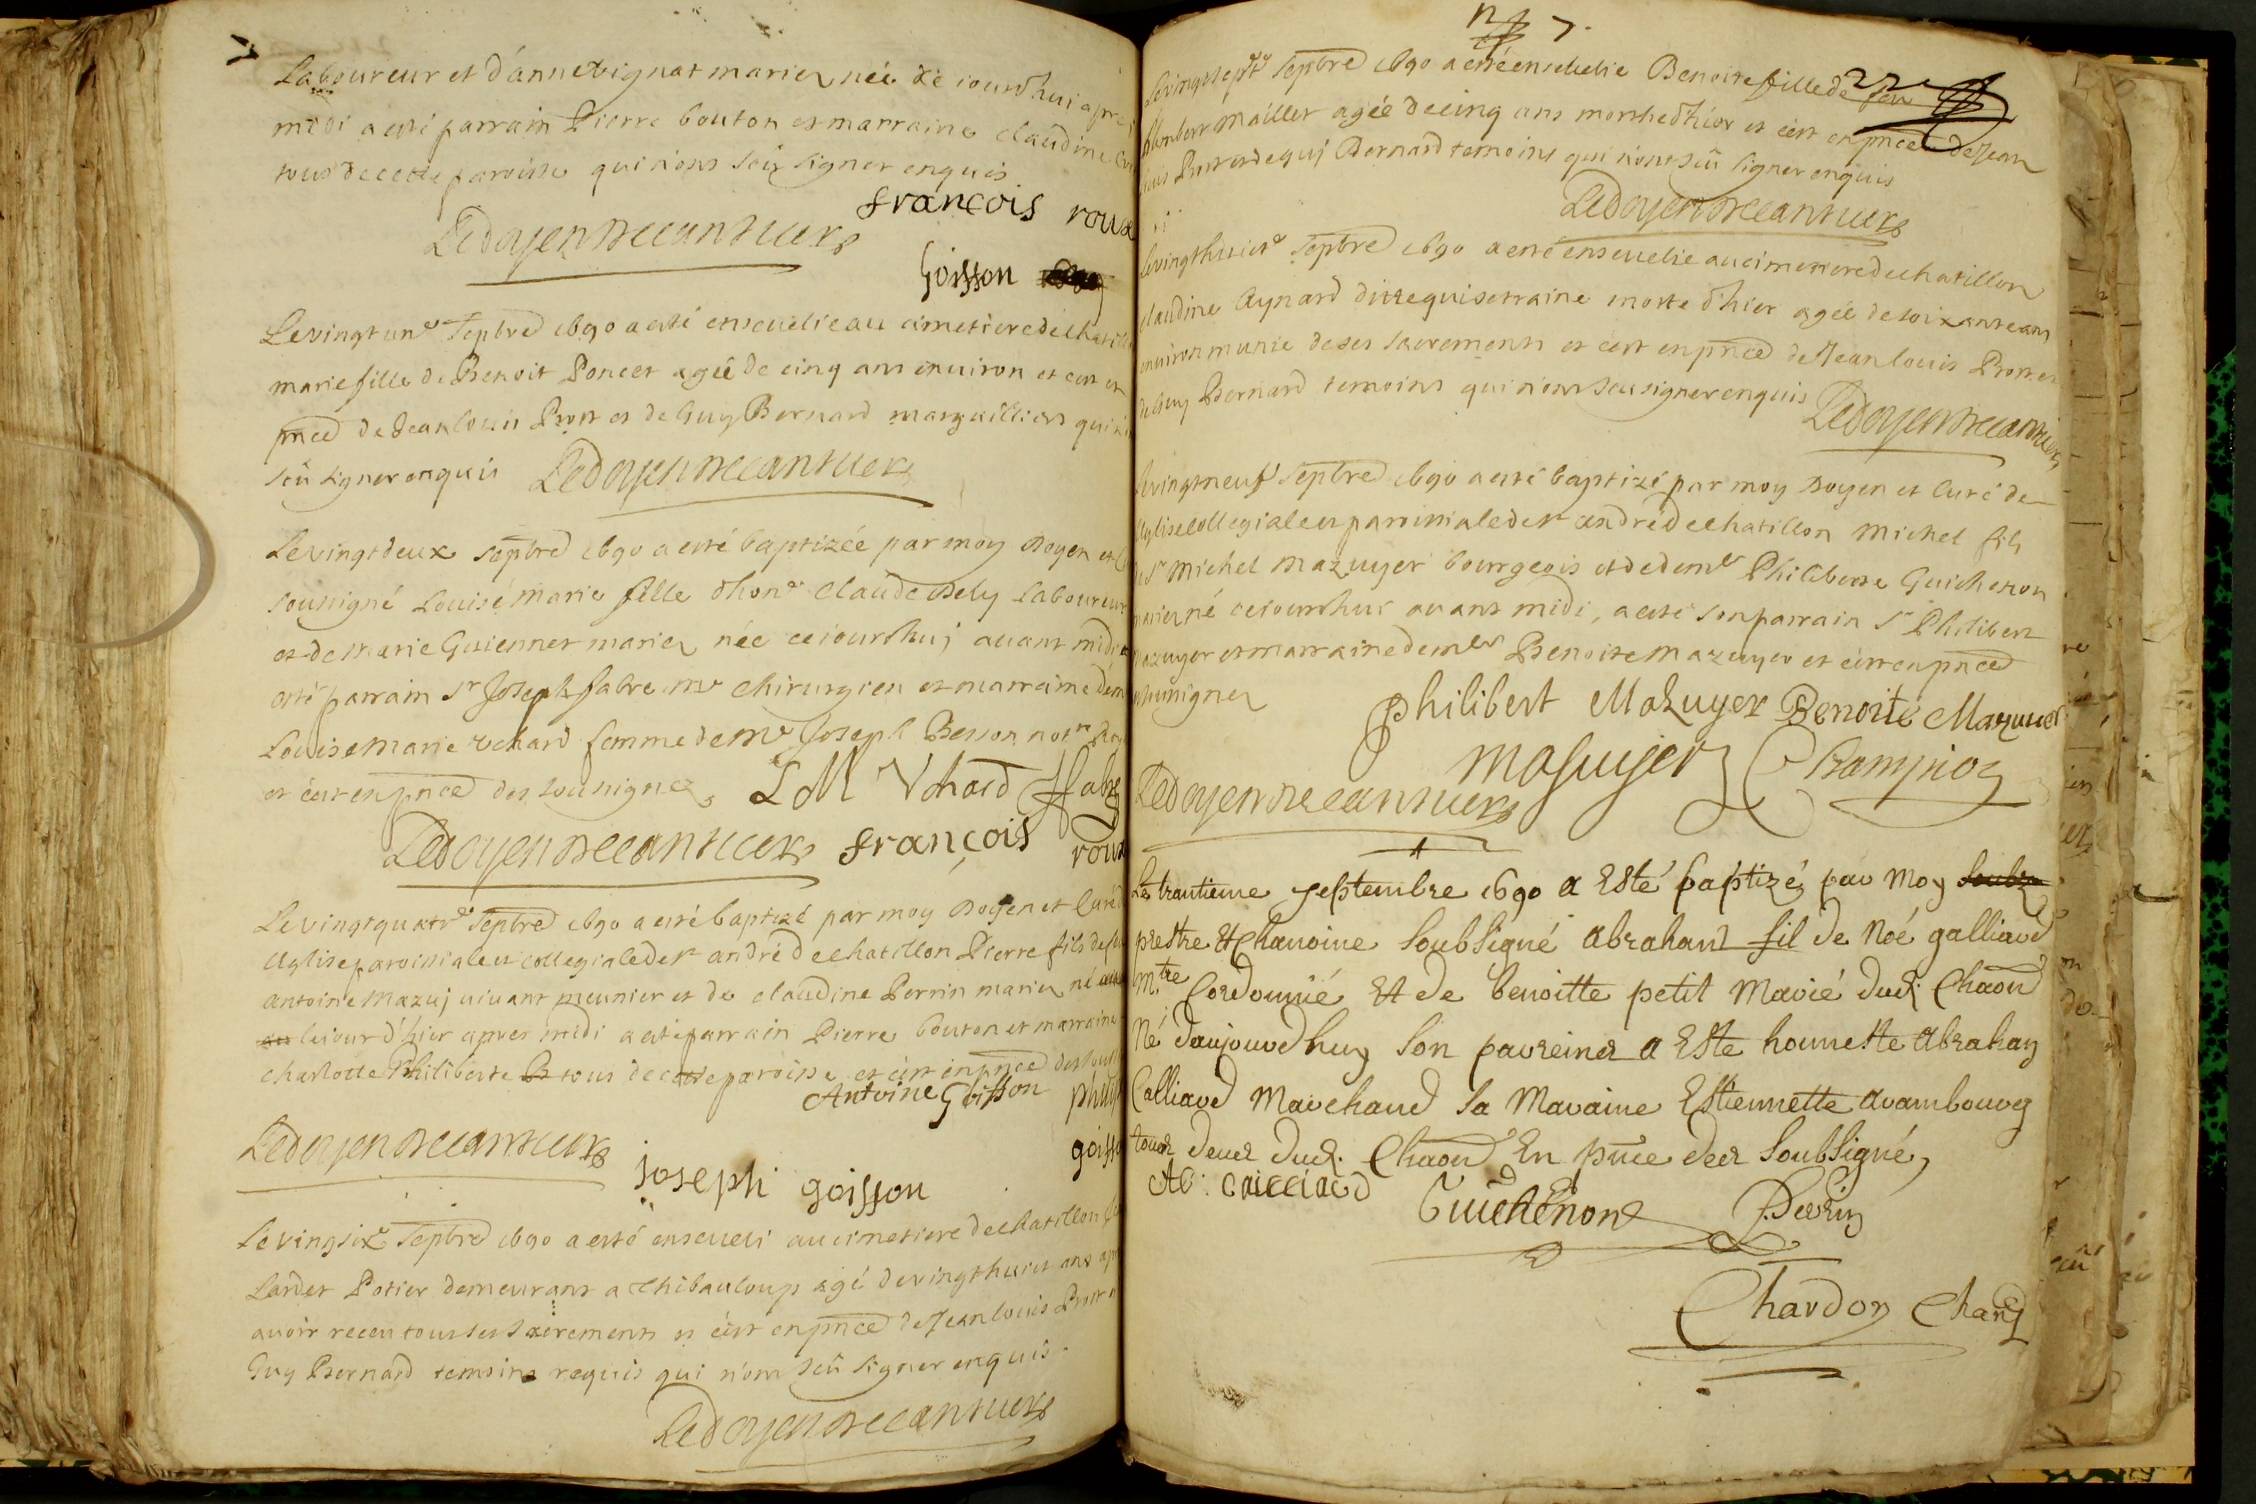 Laboureur et d'anne vignat mariez née ce iourdhui apres
midi a esté parrain Pierre bouton et marraine claudine
tous de cette paroisse qui n'ons sçeu signer enquis
françois roux
Ledoyen Decanticurs
Goisson
Le vingt un.e Septbre 1690 a esté ensevelie au cimetiere de chatillon
marie fille de Benoit Poncet agée de cinq ans environ et c'est en
pnce de Jean louis Prost et de Guy Bernard marguilliers qui n'ont
sçeu signer enquis Ledoyen
Le vingt deux Septbre 1690 a esté baptizée par moy Doyen et
soussigné Louise marie fille d'hon.e Claude Dely laboureur
et de marie Guiennet mariez née ce iourdhuj avant midi a
esté parrain Sr Joseph fabre me chirurgien et marraine dem
Louise marie Vchard femme de me Joseph Besson not.re
et c'est en pnce des soussignez L M Vchard ffabre
Ledoyen françois roux
Le vingt quatr.e Septbre 1690 a esté baptizé par moy Doyen et Curé de
l'Eglise paroissiale et collegiale de St andré de chatillon Pierre fils de feu
antoine Mazuj vivant meunier et de claudine Perrin mariez né
le iour d'hier apres midi a esté parrain Pierre bouton et marraine
charlotte Philiberte tous de cette paroisse et c'est en pnce des
Antoine Goisson
Ledoyen
joseph goisson
goisson
Le vingsix.e Septbre 1690 a esté enseveli au cimetiere de chatillon
Lardet Potier demeurant a Thibauloup agé de vingt huict ans apres
avoir receu tous ses sacrements et c'est en pnce de Jean louis Prost et
Guy Bernard temoins requis qui n'ons sçeu signer enquis
Ledoyen
7.
Le vingt sept.e Septbre 1690 a esté ensevelie Benoite fille de feu
humbert Maillet agée de cinq ans morte d'hier et c'est en pnce de Jean
louis Prost et de guj Bernard temoins qui n'ont sçeu signer enquis
Ledoyen
Le vingt huict.e Septbre 1690 a esté ensevelie au cimetiere de chatillon
claudine Aynard ditte quisetraine morte d'hier agée de soixante ans
environ munie de ses sacrements et c'est en pnce de Jean louis Prost et
de Guy Bernard temoins qui n'ons sceu signer enquis Ledoyen
Le vingt neuf Septbre 1690 a esté baptizé par moy Doyen et Curé de
l'Eglise collegiale et parroissiale de St andré de chatillon Michel fils
de Sr Michel Mazuyer bourgeois et de dem.le Philiberte Guichenon
mariez né ce iourdhui avant midi, a esté son parrain Sr Philibert
Mazuyer et marraine dem.lle Benoite Mazuyer et c'est en pnce
soussignez
Philibert Mazuyer Benoite Mazuyer
Masuyer Champion
Ledoyen
Le trantieme septembre 1690 a Esté baptizé par moy
prestre Et Chanoine soubsigné abraham fil de Noé galliard
m.tre Cordonnié Et de benoitte petit Marié dud. Chaon
Né daujourdhuy son parreiner a Este honneste Abraham
Galliard Marchand sa Maraine Estiennette avambourg
touts deuer dud. Chaon En pnce deer soubsigné,
AB: GAILLIARD
Guichenon Perrin
Chardon Chan.